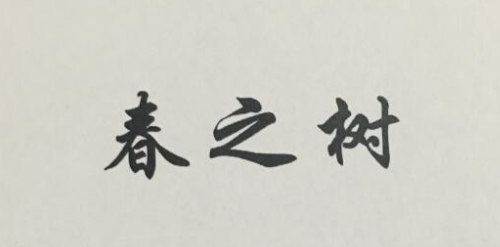 春之树